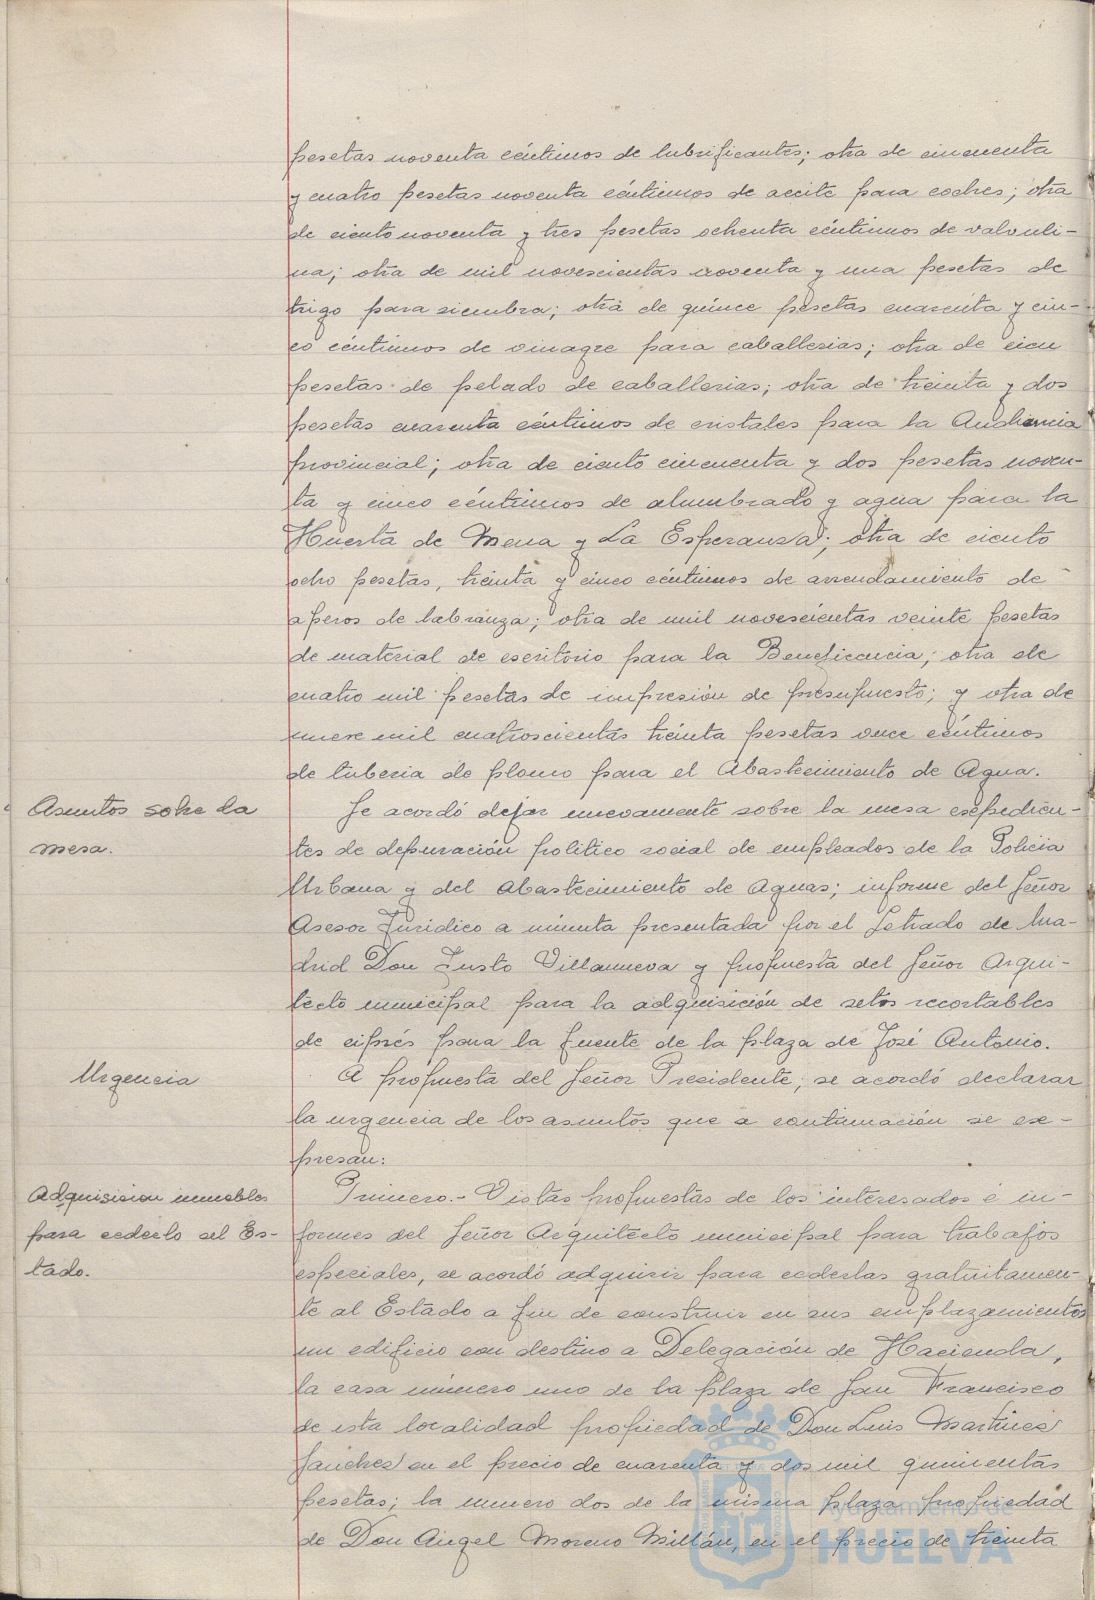 pesetas noventa céntimos de lubrificantes; otra de cincuenta
y cuatro pesetas noventa céntimos de aceite para coches; otra
de ciento noventa y tres pesetas ochenta céntimos de valvuli-
na; otra de mil novescientas noventa y una pesetas de
trigo para siembra; otra de quince pesetas cuarenta y cin-
co céntimos de vinagre para caballerias; otra de cien
pesetas de pelado de caballerias; otra de treinta y dos
pesetas cuarenta céntimos de cristales para la Audiencia
provincial; otra de ciento cincuenta y dos pesetas noven-
ta y cinco céntimos de alumbrado y agua para la
Huerta de Mena y La Esperanza; otra de ciento
ocho pesetas, treinta y cinco céntimos de arrendamiento de
aperos de labranza; otra de mil novescientas veinte pesetas
de material de escritorio para la Beneficencia; otra de
cuatro mil pesetas de impresión de presupuesto; y otra de
nueve mil cuatroscientas treinta pesetas once céntimos
de tuberia de plomo para el Abastecimiento de Agua.
Asuntos sobre la
mesa.
Se acordó dejar nuevamente sobre la mesa expedien-
tes de depuración politico social de empleados de la Policia
Urbana y del Abastecimiento de Aguas; informe del Señor
Asesor Juridico a minuta presentada por el Letrado de Ma-
drid Don Justo Villanueva y propuesta del Señor Arqui-
tecto municipal para la adquisición de setos recortables
de ciprés para la fuente de la plaza de José Antonio.
Urgencia
A propuesta del Señor Presidente; se acordó declarar
la urgencia de los asuntos que a continuación se ex-
presan:
Adquisicion inmuebles
para cederlo al Es-
tado.
Primero.- Vistas propuestas de los interesados é in-
formes del Señor Arquitecto municipal para trabajos
especiales, se acordó adquirir para cederlas gratuitamen-
te al Estado a fin de construir en sus emplazamientos
un edificio con destino a Delegación de Hacienda,
la casa número uno de la plaza de San Francisco
de esta localidad propiedad de Don Luis Martinez
Sanchez en el precio de cuarenta y dos mil quinientas
pesetas; la numero dos de la misma plaza propiedad
de Don Angel Moreno Millán, en el precio de treinta
Ayuntamiento de
HUELVA